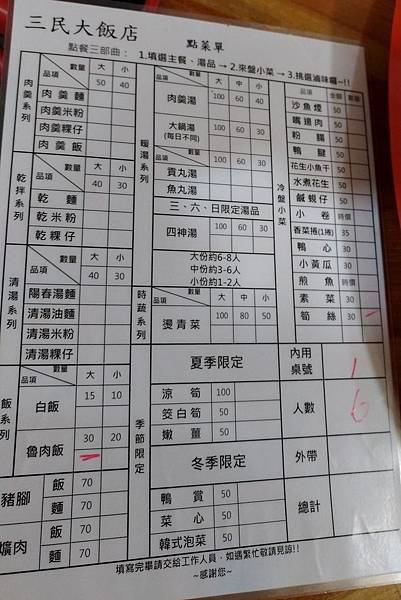 三民大飯店 點菜單
點餐三部曲： 1.填選主餐、湯品→2.來盤小菜→3.挑選滷味囉~!!
肉羹系列
品項 數量 大 小
50 40
肉羹麵
肉羹米粉
肉羹粿仔
肉羹飯
乾拌系列
品項 數量 大 小
40 30
乾麵
乾米粉
乾粿仔
清湯系列
品項 數量 大 小
40 30
陽春湯麵
清湯油麵
清湯米粉
清湯粿仔
飯系列
品項 數量 大 小
白飯 15 10
魯肉飯 30 20
豬腳 飯 70
麵 70
爌肉 飯 70
麵 70
暖湯系列
品項 數量 大 中 小
肉羹湯 100 60 40
大鍋湯 (每日不同) 100 60 30
貢丸湯 60 30
魚丸湯 60 30
三、六、日限定湯品
四神湯 100 60 30
大份約6-8人
中份約3-6人
小份約1-2人
時蔬系列
品項 數量 大 中 小
燙青菜 100 80 50
季節限定
夏季限定
涼筍 100
筊白筍 50
嫩薑 50
冬季限定
鴨賞 50
菜心 50
韓式泡菜 50
冷盤小菜
品項 金額 數量
沙魚煙
嘴邊肉
粉腸
鴨腱
花生小魚干
水煮花生 30
鹹蜆仔 30
小卷 時價
香菜捲(1捲) 35
鴨心 30
小黃瓜 30
煎魚 時價
素菜 30
筍絲 30
內用桌號 1
人數 6
外帶
總計
填寫完畢請交給工作人員，如遇繁忙敬請見諒!!
~感謝您~